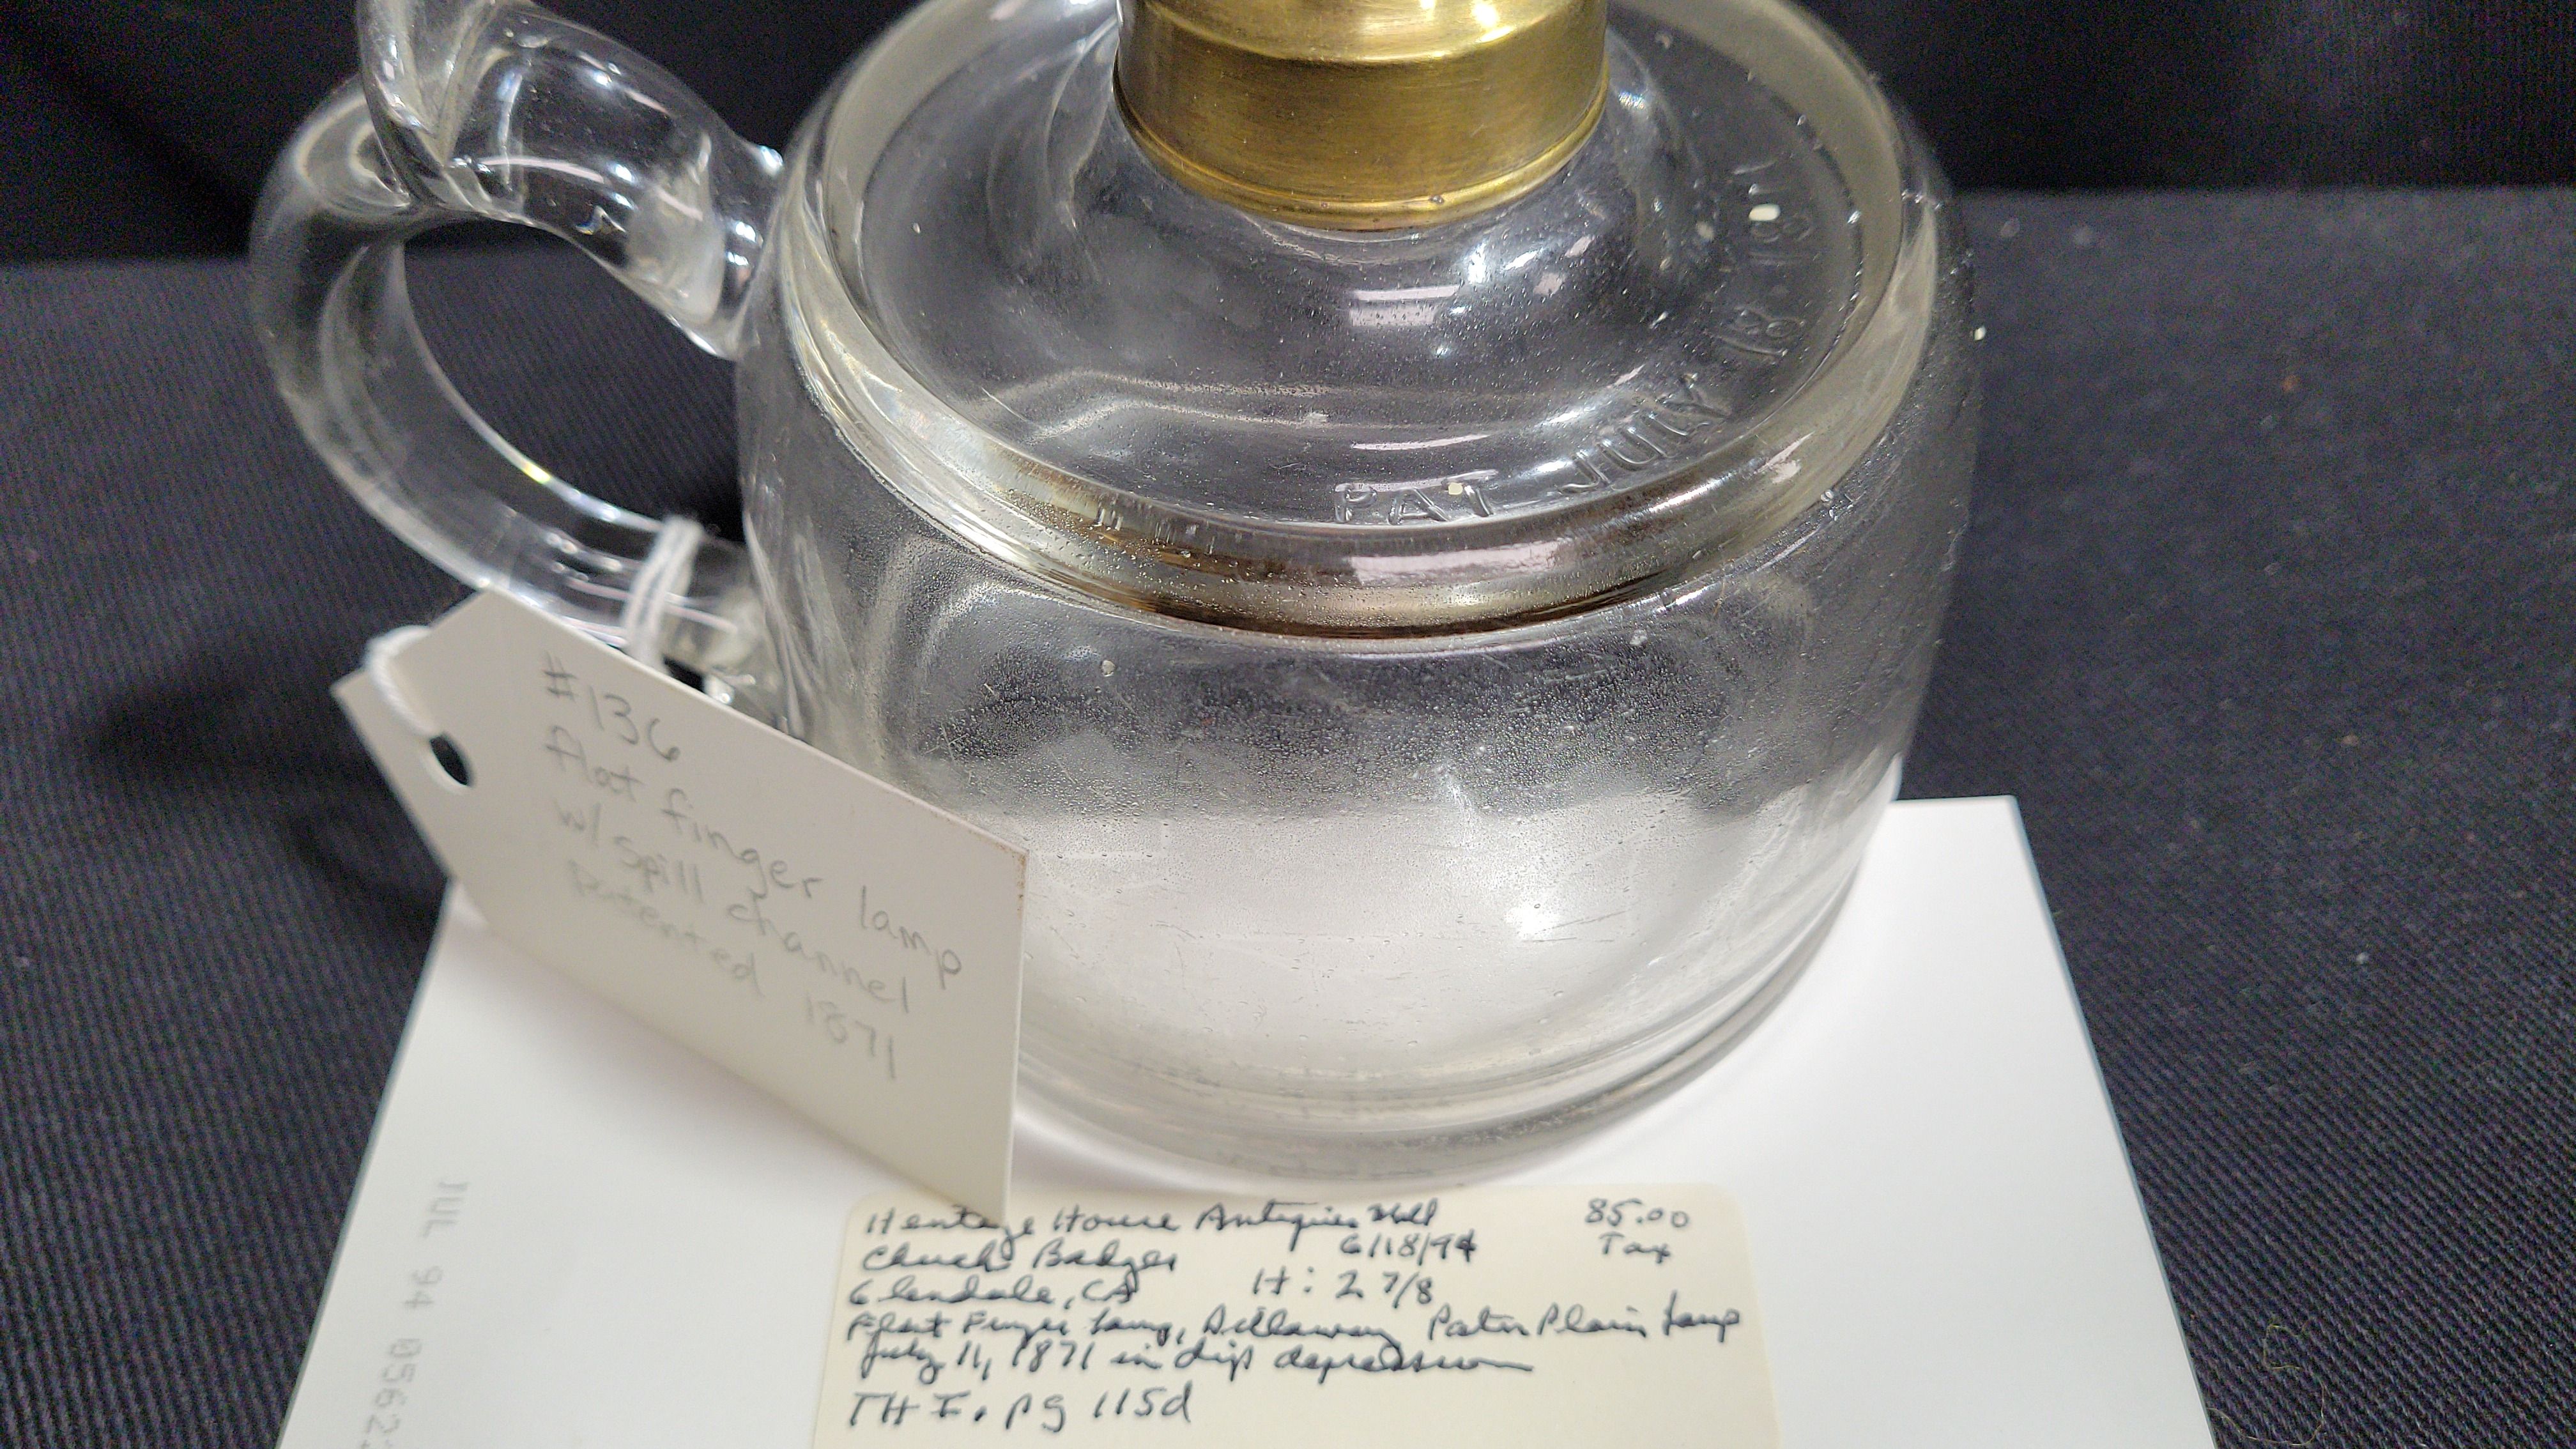 PAT JULY 18 · 1871
#136
flat finger lamp
w/ Spill channel
Patented 1871
Heritage House Antiques Mall 85.00
Chuck Badger 6/18/94 Tax
Glendale, CA H: 2 7/8
Flat Finger Lamp, Dillaway Paten Plain Lamp
July 11, 1871 in dip depression
TH I, pg 115d
JUL 94 0562